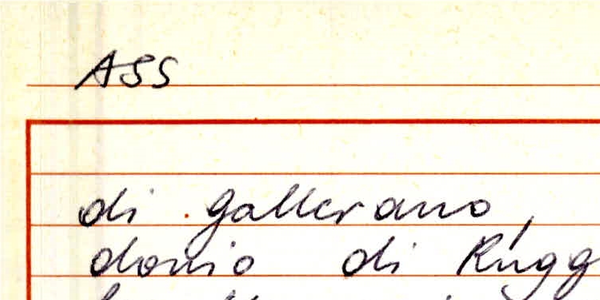 ASS
di gallerano,
donio di Rugg